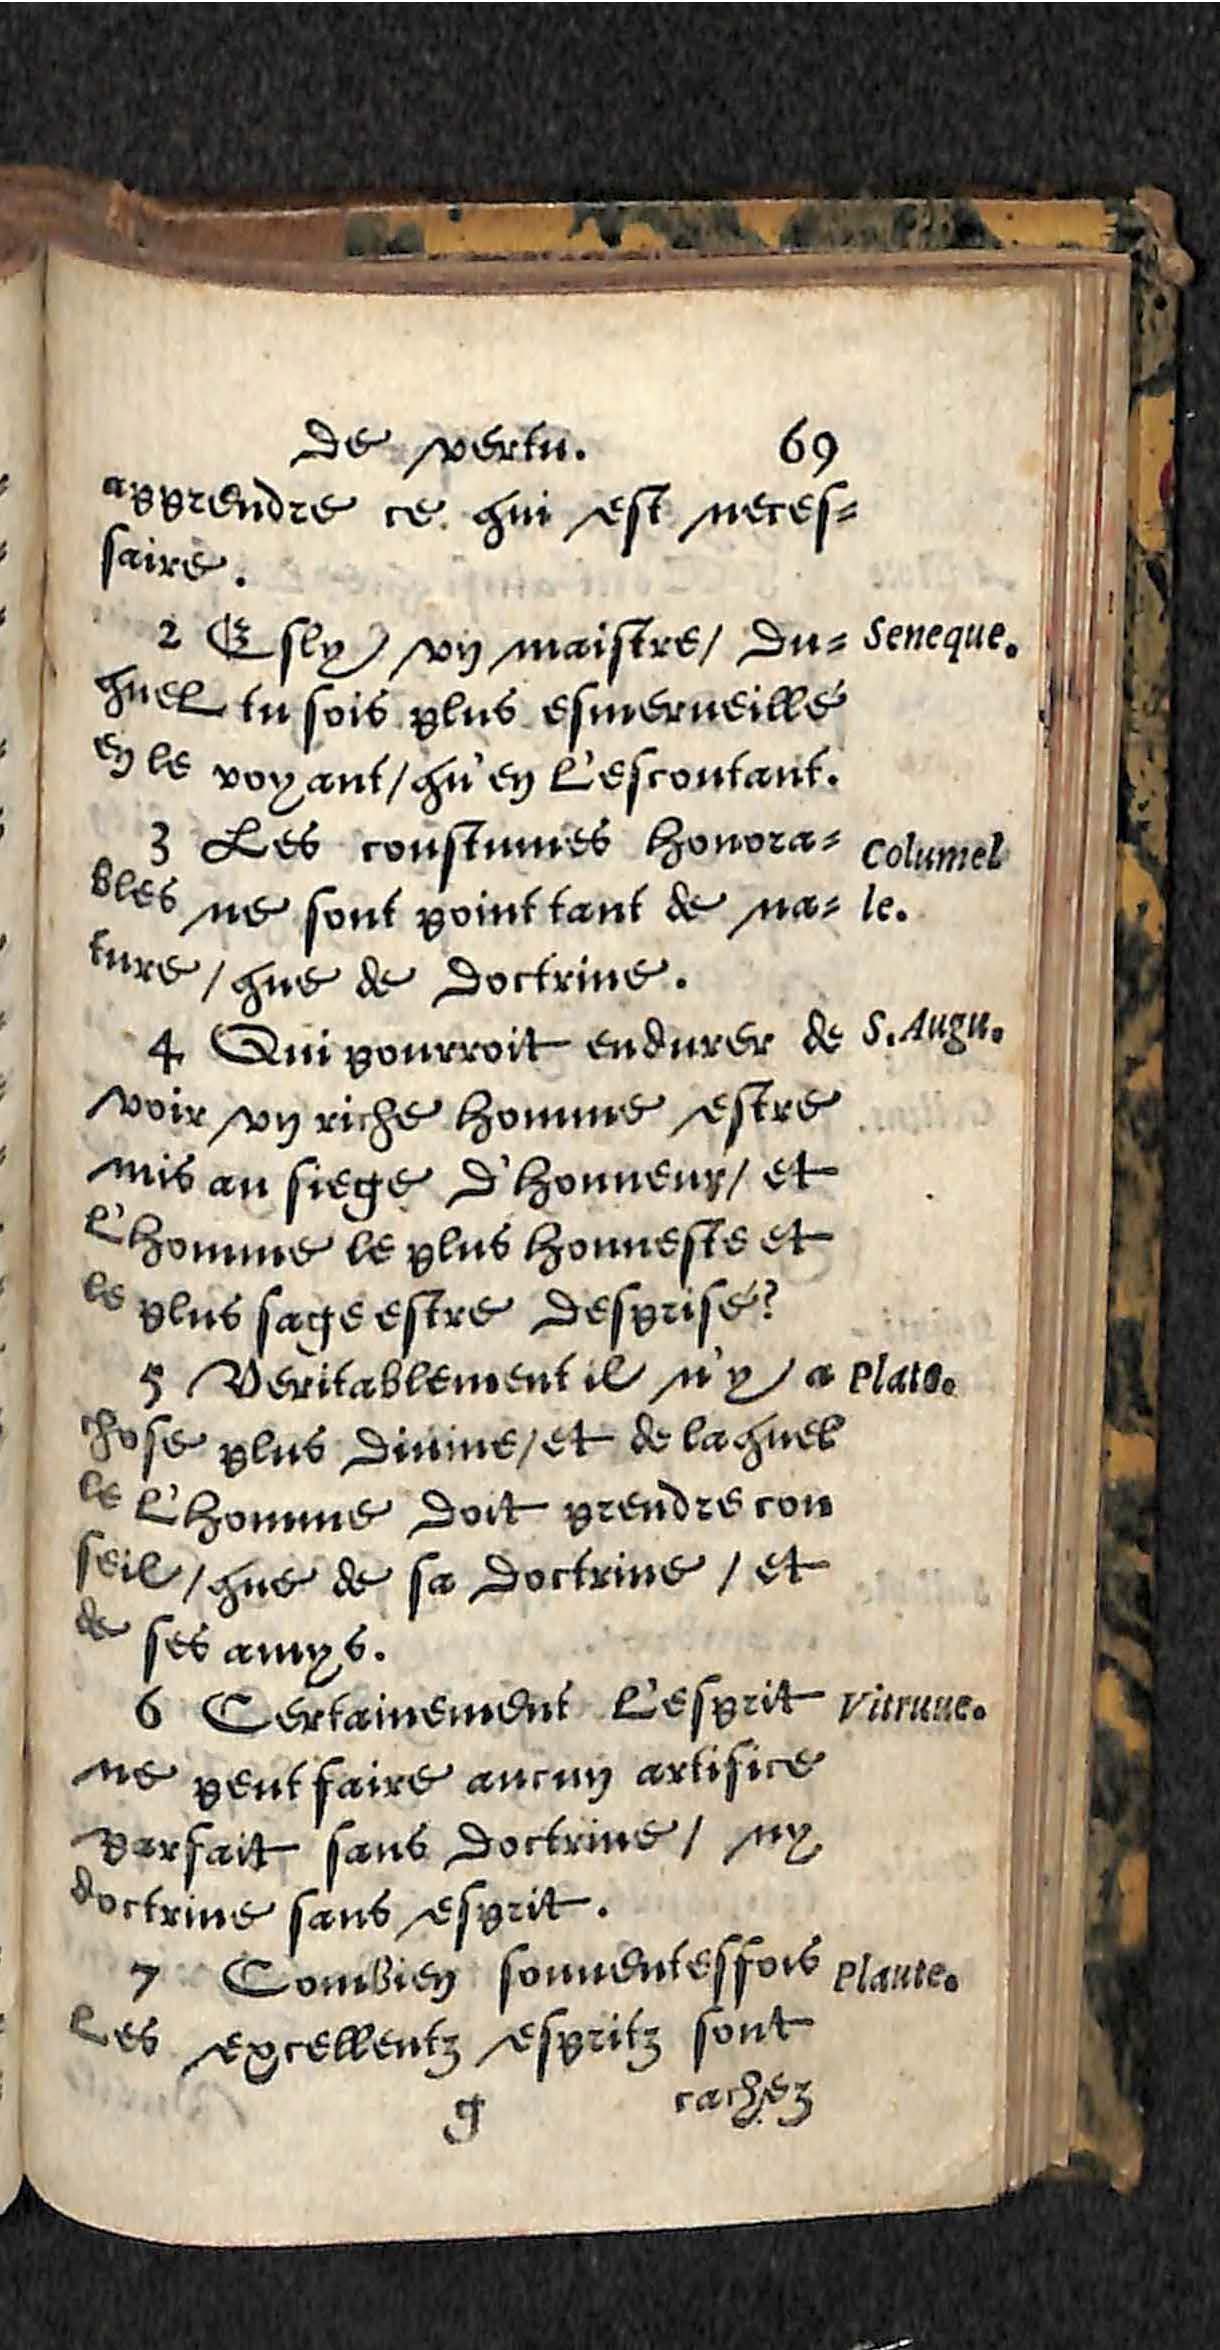 de vertu. 69
apprendre ce qui est neces=
saire.
2 Esly vn maistre/ du= Seneque.
quel tu sois plus esmerueillé
en le voyant/qu'en l'escoutant.
3 Les coustumes honora= Columel
bles ne sont point tant de na= le.
ture/que de doctrine.
4 Qui pourroit endurer de S. Augu.
voir vn riche homme estre
mis au siege d'honneur/et
l'homme le plus honneste et
le plus sage estre desprisé?
5 Veritablement il n'y a Plato.
chose plus diuine/et de laquel
le l'homme doit prendre con
seil/que de sa doctrine/et
de ses amys.
6 Certainement l'esprit Vitruue.
ne peut faire aucun artifice
parfait sans doctrine/ ny
doctrine sans esprit.
7 Combien souuentesfois Plaute.
les excellentz espritz sont
g cachez